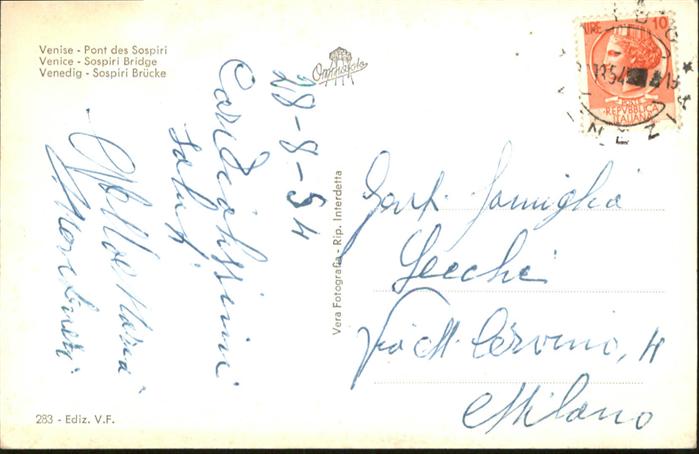 Venise - Pont des Sospiri
Venice - Sospiri Bridge
Venedig - Sospiri Brücke
28-8-54
Cordialissimi
saluti
Maria
283 - Ediz. V.F.
Vera Fotografia - Rip. Interdetta
LIRE 10
POSTE
REPVBBLICA
ITALIANA
Gent. Famiglia
Secchi
Via M. Cervino, 4
Milano